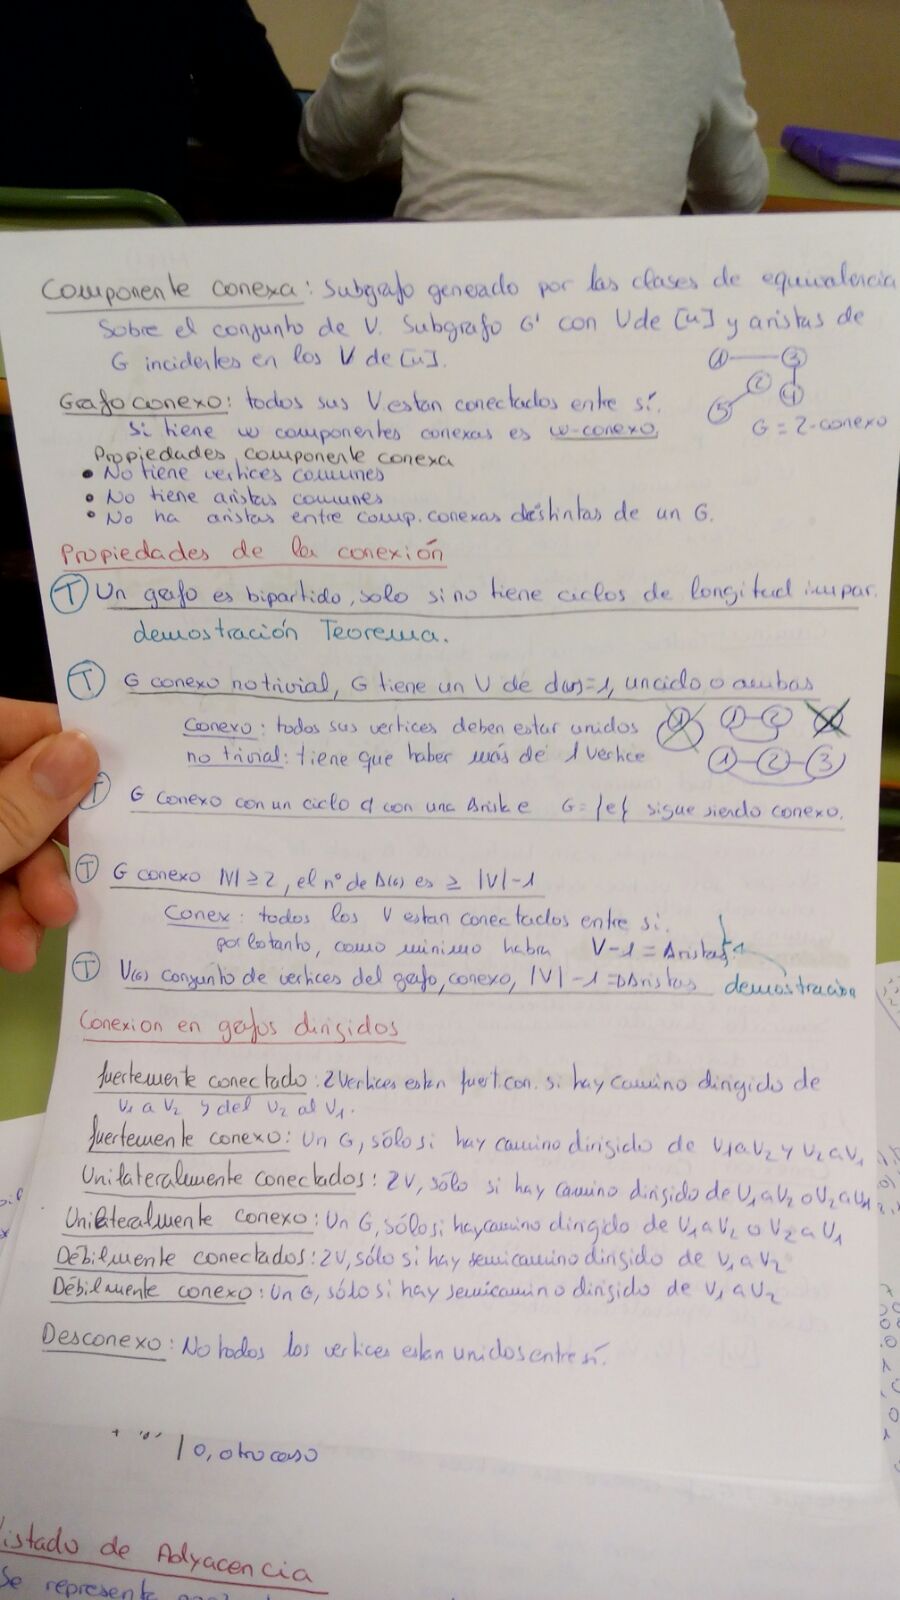 Componente conexa: Subgrafo geneado por las clases de equivalencia
Sobre el conjunto de V. Subgrafo G' con V de [u] y aristas de
G incidentes en los V de [u].
1 3
2
5 4
G = 2-conexo
Grafo conexo: todos sus V estan conectados entre sí.
Si tiene w componentes conexas es w-conexo.
Propiedades componente conexa
• No tiene vertices comunes
• No tiene aristas comunes
• No ha aristas entre comp. conexas distintas de un G.
Propiedades de la conexión
T Un grafo es bipartido, solo si no tiene ciclos de longitud impar.
demostración Teorema.
T G conexo no trivial, G tiene un V de d(v)=1, un ciclo o ambas
Conexo: todos sus vertices deben estar unidos
1 1 2
no trivial: tiene que haber más de 1 vertice
1 2 3
T G conexo con un ciclo con una G= {e} sigue siendo conexo.
T G conexo |V| ≥ 2, el nº de A(G) es ≥ |V|-1
Conex: todos los V estan conectados entre si.
por lo tanto, como minimo habra V-1 = Aristas
T V(G) conjunto de vertices del grafo, conexo, |V|-1 = Aristas demostracion
Conexion en grafos dirigidos
fuertemente conectado: 2 vertices estan fuert. con. si hay camino dirigido de
V1 a V2 y del V2 al V1.
fuertemente conexo: Un G, sólo si hay camino dirigido de V1 a V2 y V2 a V1
Unilateralmente conectados: 2V, sólo si hay camino dirigido de V1 a V2 o V2 a V1
Unilateralmente conexo: Un G, sólo si hay camino dirigido de V1 a V2 o V2 a V1
Débilmente conectados: 2V, sólo si hay semicamino dirigido de V1 a V2
Débilmente conexo: Un G, sólo si hay semicamino dirigido de V1 a V2
Desconexo: No todos los vertices estan unidos entre sí.
0, otro caso
istado de Adyacencia
Se representa